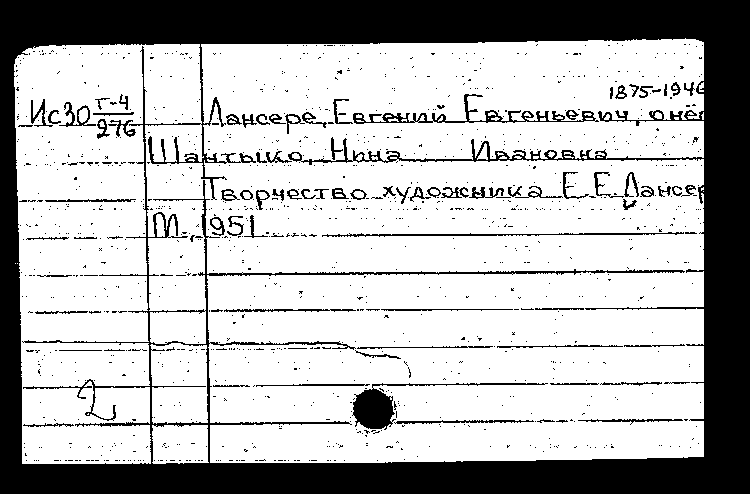 1875-1946
Ис30 Г-4/276 Лансере, Евгений Евгеньевич, о нём
Шантыко, Нина Ивановна
Творчество художника Е.Е. Лансер
М., 1951
2